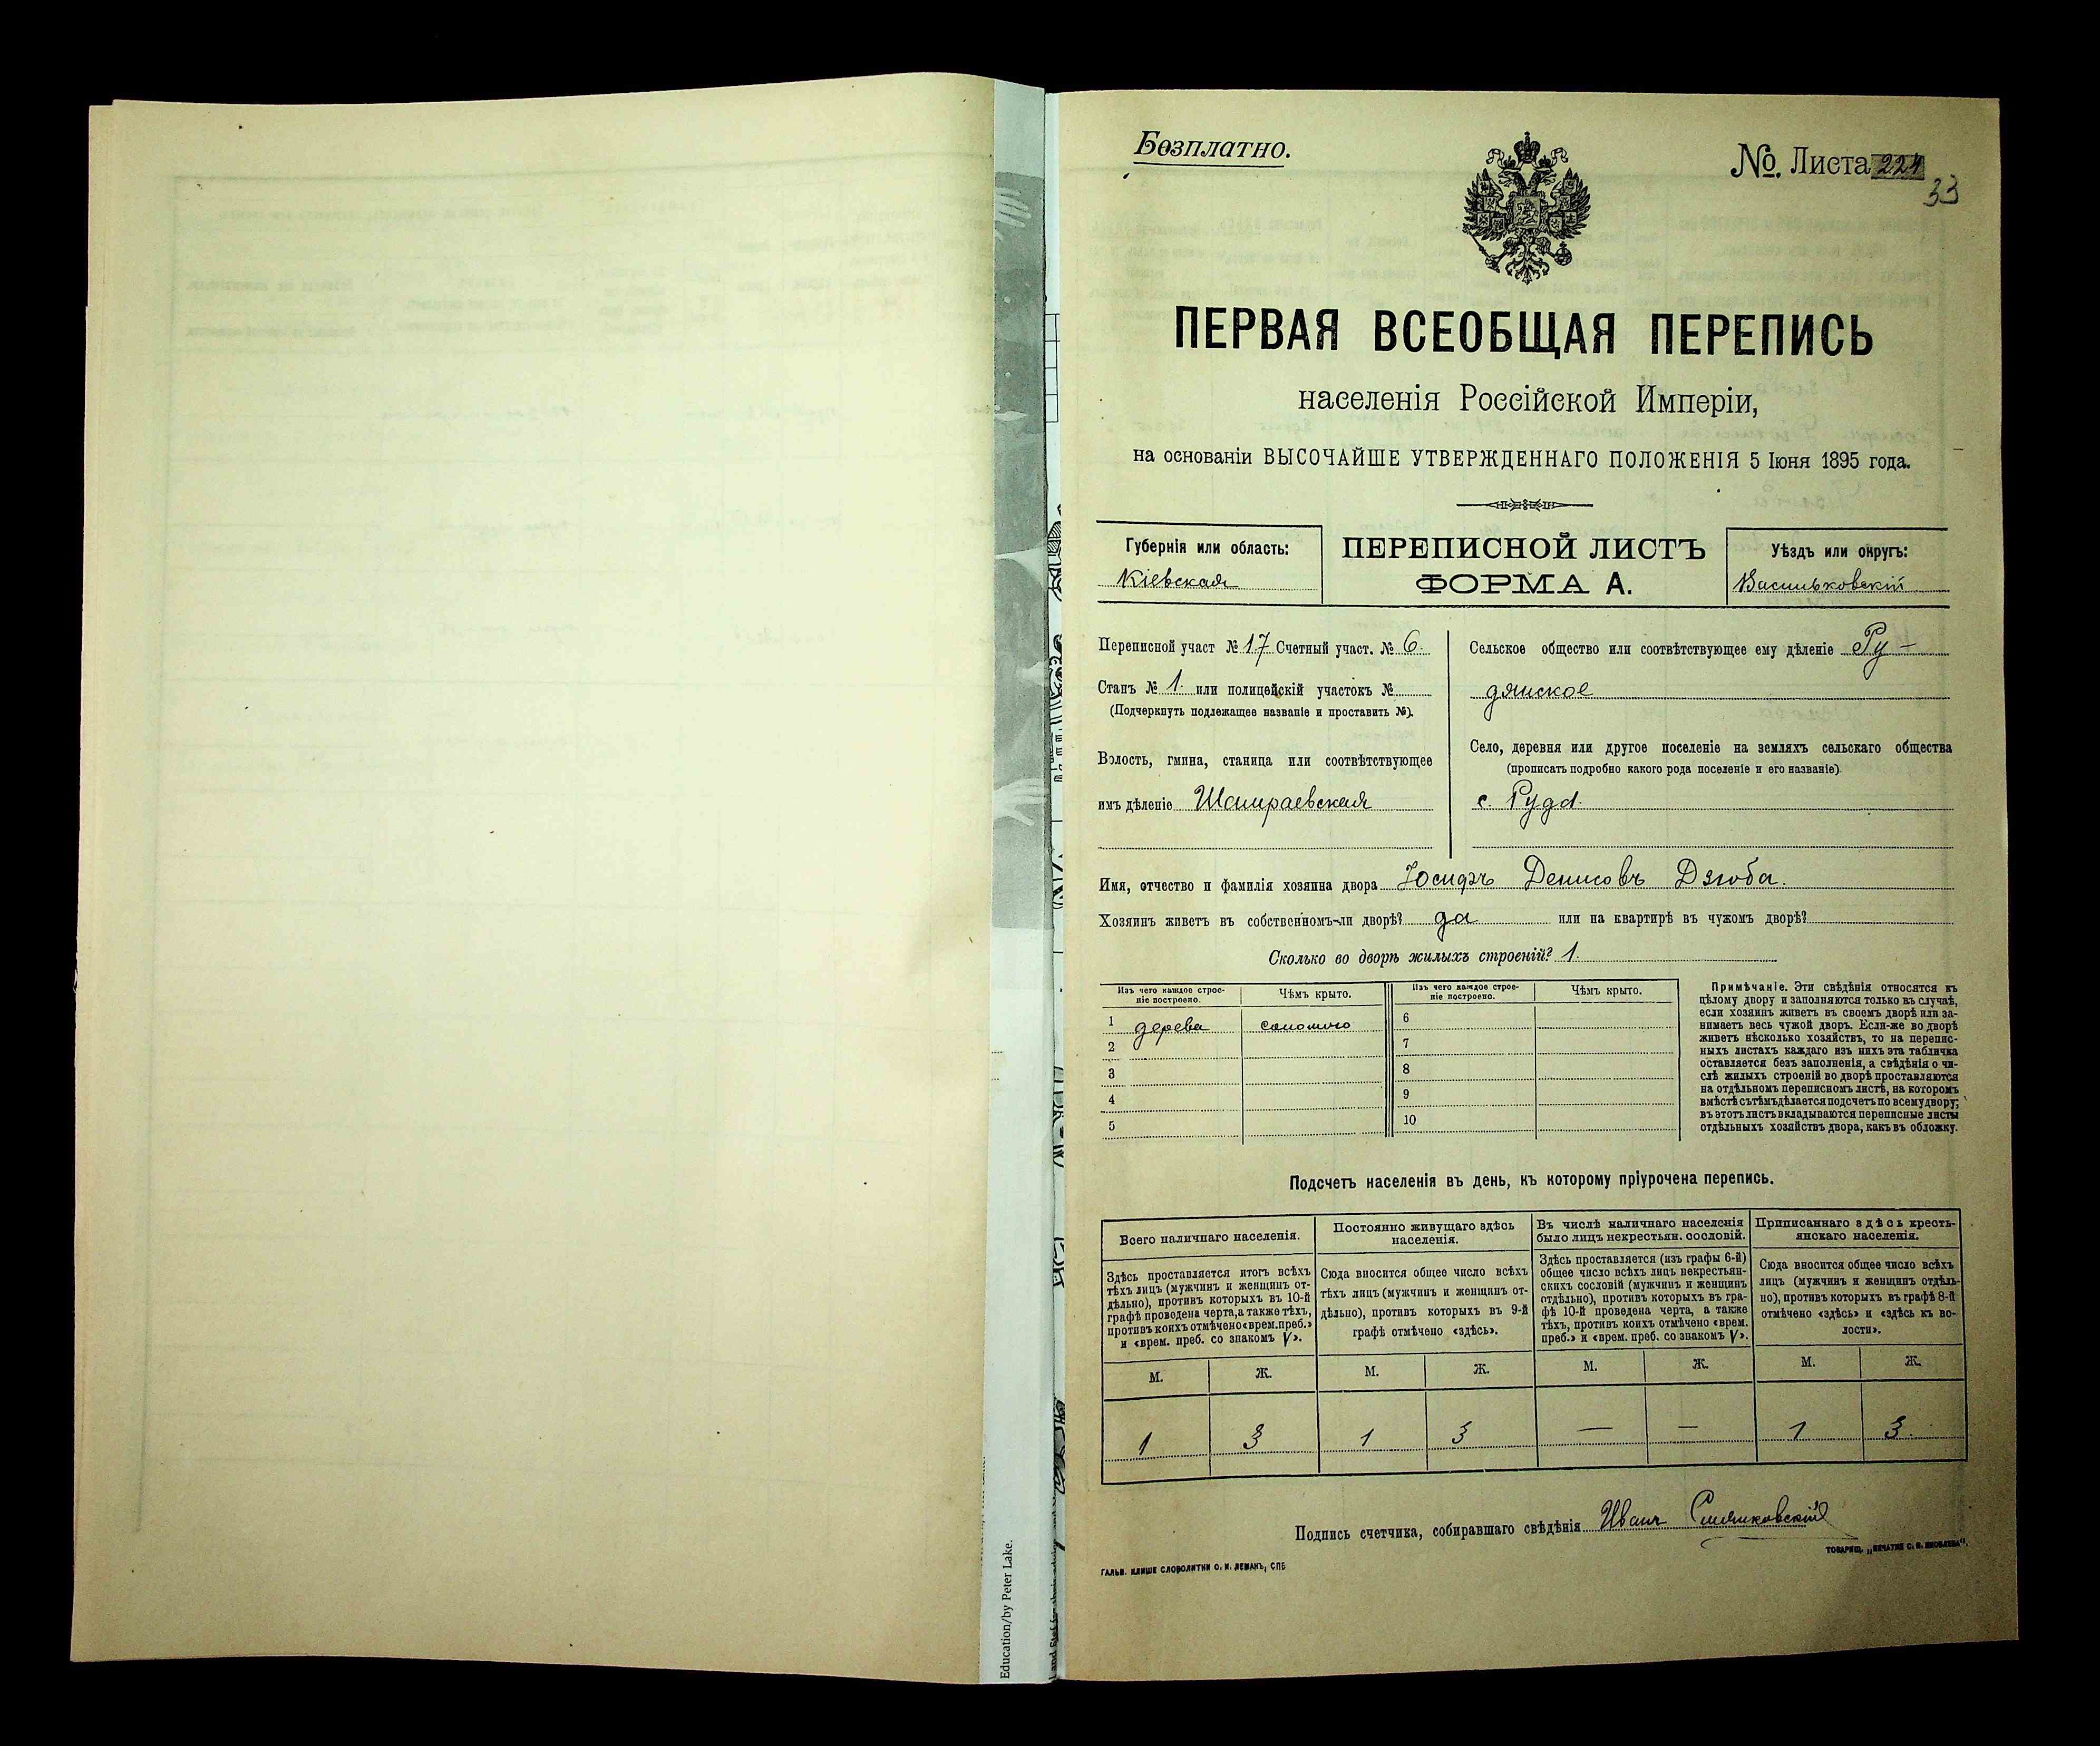 Безплатно.
№. Листа 224
33
ПЕРВАЯ ВСЕОБЩАЯ ПЕРЕПИСЬ
населенія Россійской Имперіи,
на основаніи ВЫСОЧАЙШЕ УТВЕРЖДЕННАГО ПОЛОЖЕНІЯ 5 Іюня 1895 года.
Губернія или область:
Кіевская
ПЕРЕПИСНОЙ ЛИСТЪ
ФОРМА А.
Уѣздъ или округъ:
Васильковскій
Переписной участ № 17 Счетный участ. № 6.
Станъ № 1. или полицейскій участокъ №
(Подчеркнуть подлежащее названіе и проставить №).
Волость, гмина, станица или соотвѣтствующее
имъ дѣленіе Шамраевская
Сельское общество или соотвѣтствующее ему дѣленіе Ру-
дянское
Село, деревня или другое поселеніе на земляхъ сельскаго общества
(прописать подробно какого рода поселеніе и его названіе)
с. Руда.
Имя, отчество и фамилія хозяина двора Іосифъ Денисовъ Дзюба.
Хозяинъ живетъ въ собственномъ-ли дворѣ? да или на квартирѣ въ чужомъ дворѣ?
Сколько во дворѣ жилыхъ строеній? 1.
Изъ чего каждое строе-
ніе построено.
Чѣмъ крыто.
Изъ чего каждое строе-
ніе построено.
Чѣмъ крыто.
1 дерева соломою 6
2 7
3 8
4 9
5 10
Примѣчаніе. Эти свѣдѣнія относятся къ
цѣлому двору и заполняются только въ случаѣ,
если хозяинъ живетъ въ своемъ дворѣ или за-
нимаетъ весь чужой дворъ. Если-же во дворѣ
живетъ нѣсколько хозяйствъ, то на перепис-
ныхъ листахъ каждаго изъ нихъ эта табличка
оставляется безъ заполненія, а свѣдѣнія о чи-
слѣ жилыхъ строеній во дворѣ проставляются
на отдѣльномъ переписномъ листѣ, на которомъ
вмѣстѣ съ тѣмъ дѣлается подсчетъ по всему двору;
въ этотъ листъ вкладываются переписные листы
отдѣльныхъ хозяйствъ двора, какъ въ обложку.
Подсчетъ населенія въ день, къ которому пріурочена перепись.
Всего наличнаго населенія.
Здѣсь проставляется итогъ всѣхъ
тѣхъ лицъ (мужчинъ и женщинъ от-
дѣльно), противъ которыхъ въ 10-й
графѣ проведена черта, а также тѣхъ,
противъ коихъ отмѣчено «врем. преб.»
и «врем. преб. со знакомъ V».
Постоянно живущаго здѣсь
населенія.
Сюда вносится общее число всѣхъ
тѣхъ лицъ (мужчинъ и женщинъ от-
дѣльно), противъ которыхъ въ 9-й
графѣ отмѣчено «здѣсь».
Въ числѣ наличнаго населенія
было лицъ некрестьян. сословій.
Здѣсь проставляется (изъ графы 6-й)
общее число всѣхъ лицъ некрестьян-
скихъ сословій (мужчинъ и женщинъ
отдѣльно), противъ которыхъ въ гра-
фѣ 10-й проведена черта, а также
тѣхъ, противъ коихъ отмѣчено «врем.
преб.» и «врем. преб. со знакомъ V».
Приписаннаго здѣсь кресть-
янскаго населенія.
Сюда вносится общее число всѣхъ
лицъ (мужчинъ и женщинъ отдѣль-
но), противъ которыхъ въ графѣ 8-й
отмѣчено «здѣсь» и «здѣсь къ во-
лости».
М. Ж. М. Ж. М. Ж. М. Ж.
1 3 1 3 — — 1 3.
Подпись счетчика, собиравшаго свѣдѣнія Иванъ
ГАЛЬВ. КЛИШЕ СЛОВОЛИТНИ О. И. ЛЕМАНЪ, СПБ
ТОВАРИЩ. „ПЕЧАТНЯ С. П. ЯКОВЛЕВА“.
Education/by Peter Lake.